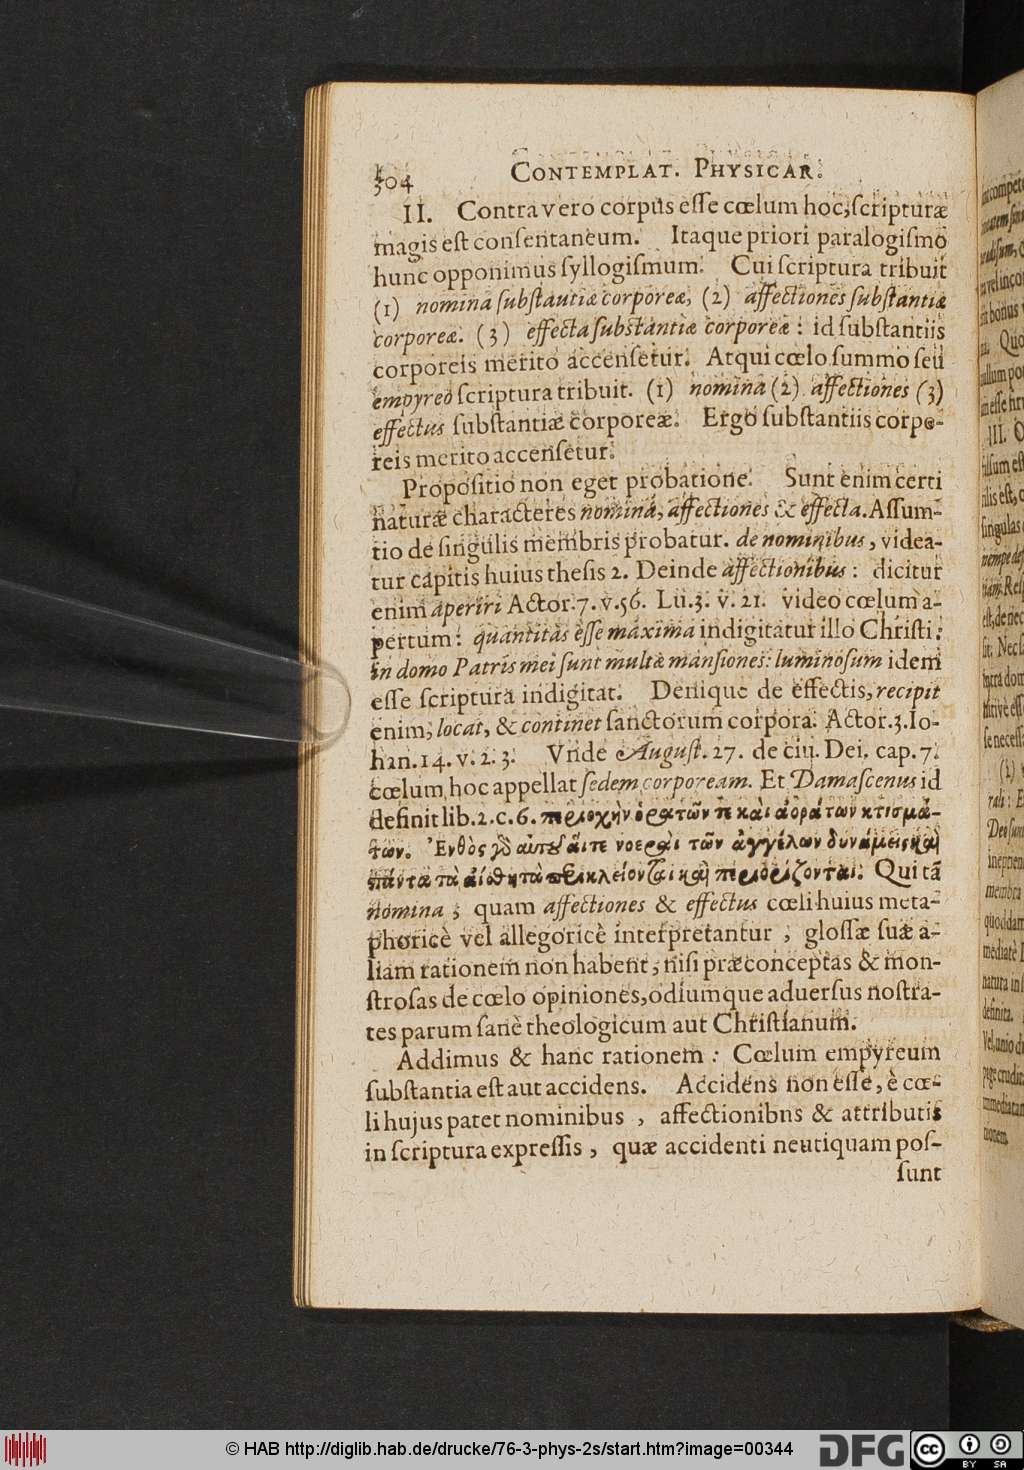 304 CONTEMPLAT. PHYSICAR.
II. Contra vero corpus esse cœlum hoc, scripturæ
magis est consentaneum. Itaque priori paralogismo
hunc opponimus syllogismum. Cui scriptura tribuit
(1) nomina substautiæ corporeæ, (2) affectiones substantiæ
corporeæ. (3) effecta substantiæ corporeæ: id substantiis
corporeis merito accensetur. Atqui cœlo summo seu
empyreo scriptura tribuit. (1) nomina (2) affectiones (3)
effectus substantiæ corporeæ. Ergo substantiis corpo-
reis merito accensetur.
Propositio non eget probatione. Sunt enim certi
naturæ characteres nomina, affectiones & effecta. Assum-
tio de singulis membris probatur. de nominibus, videa-
tur capitis huius thesis 2. Deinde affectionibus: dicitur
enim aperiri Actor. 7. v. 56. Lu. 3. v. 21. video cœlum a-
pertum: quantitas esse maxima indigitatur illo Christi:
in domo Patris mei sunt multæ mansiones: luminosum idem
esse scriptura indigitat. Denique de effectis, recipit
enim, locat, & continet sanctorum corpora. Actor. 3. Io-
han. 14. v. 2. 3. Vnde August. 27. de ciu. Dei. cap. 7.
cœlum hoc appellat sedem corpoream. Et Damascenus id
definit lib. 2. c. 6. περιοχὴν ὁρατῶν τε καὶ ἀοράτων κτισμά-
των. Ἐνθὸς γὸ αὐτοῦ αἵτε νοεραὶ τῶν ἀγγέλων δυνάμεις καὶ
πάντα τὰ αἰσθητὰ περικλείονται καὶ περιορίζονται. Qui tã
nomina; quam affectiones & effectus cœli huius meta-
phoricè vel allegoricè interpretantur, glossæ suæ a-
liam rationem non habent, nisi præconceptas & mon-
strosas de cœlo opiniones, odiumque aduersus nostra-
tes parum sanè theologicum aut Christianum.
Addimus & hanc rationem: Cœlum empyreum
substantia est aut accidens. Accidens non esse, è cœ-
li hujus patet nominibus, affectionibns & attributis
in scriptura expressis, quæ accidenti neutiquam pos-
sunt
© HAB http://diglib.hab.de/drucke/76-3-phys-2s/start.htm?image=00344
DFG
cc BY SA